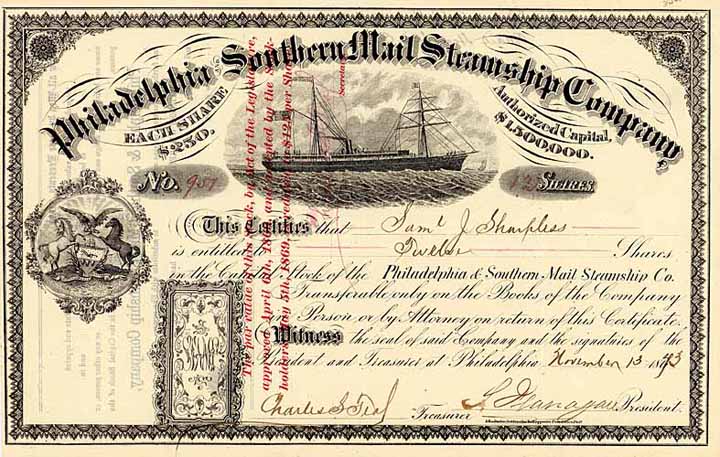 Philadelphia and Southern Mail Steamship Company
EACH SHARE
$250.
Authorized Capital,
$1,500,000.
No. 957
12 SHARES
This Certifies that Saml J Sharpless
is entitled to Twelve Shares
in the Capital Stock of the Philadelphia & Southern Mail Steamship Co.
Transferable only on the Books of the Company
in Person or by Attorney on return of this Certificate.
Witness the seal of said Company and the signatures of the
President and Treasurer at Philadelphia November 13 1873
Charles S Teal Treasurer President.
The par value of this stock, by act of the Legislature,
approved April 6th, 1869, and accepted by the Stock-
holders May 5th, 1869, reduced to $125 per Share
Secretary